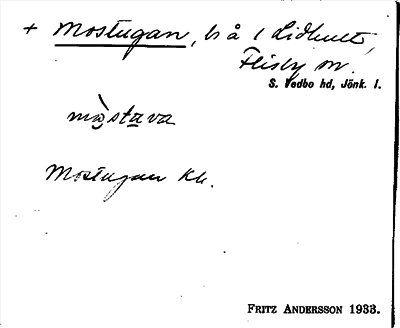 + Mostugan, ls å 1 Lidhult,
Flisby sn.
S. Vedbo hd, Jönk. l.
må̀stava
Mostugan Kk.
FRITZ ANDERSSON 1933.